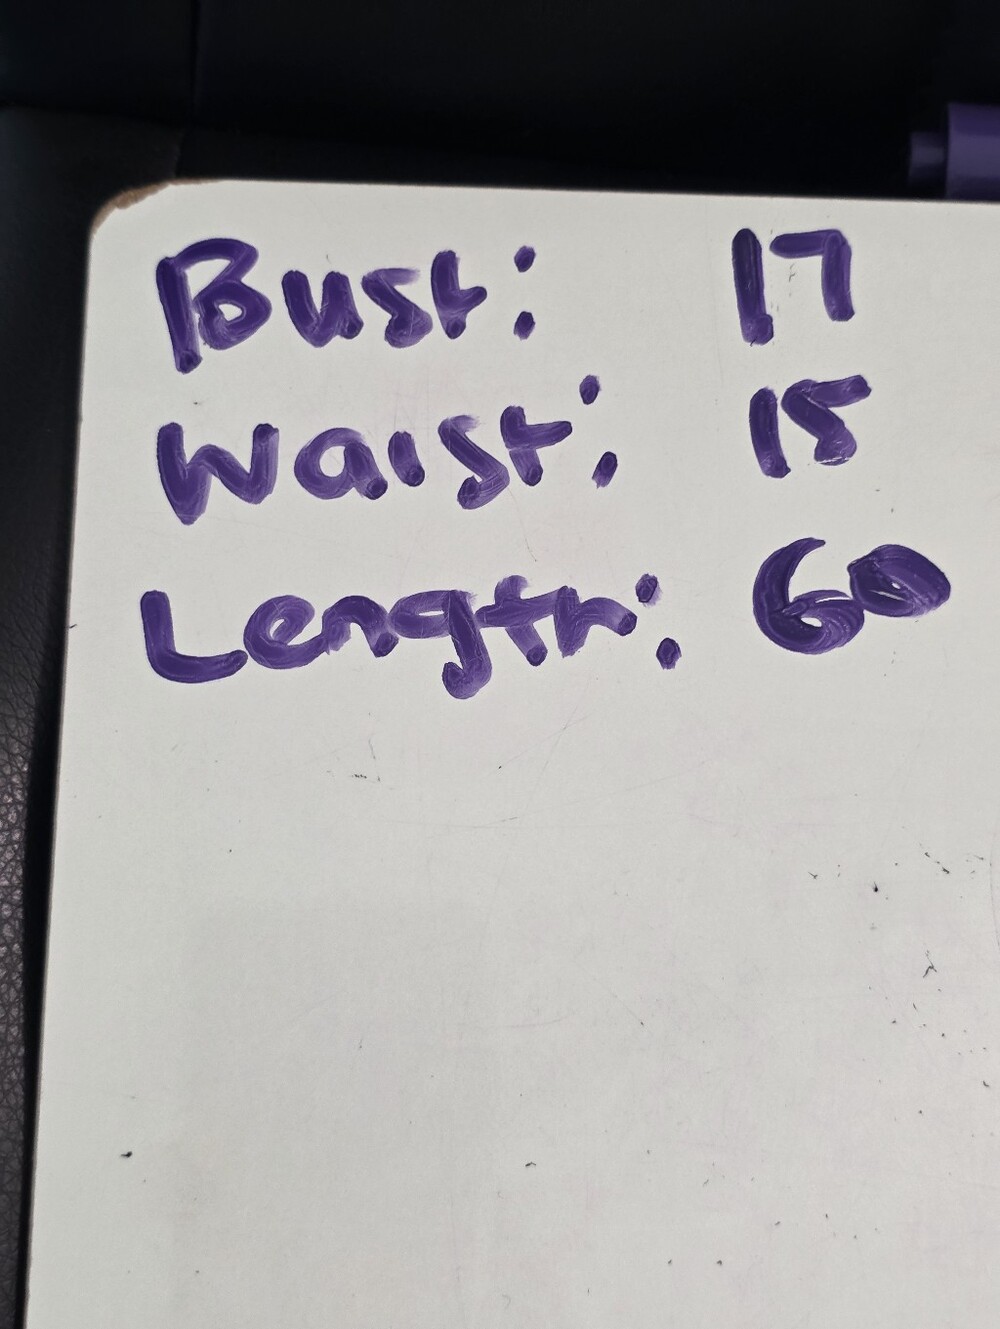 Bust: 17
Waist: 15
Length: 60